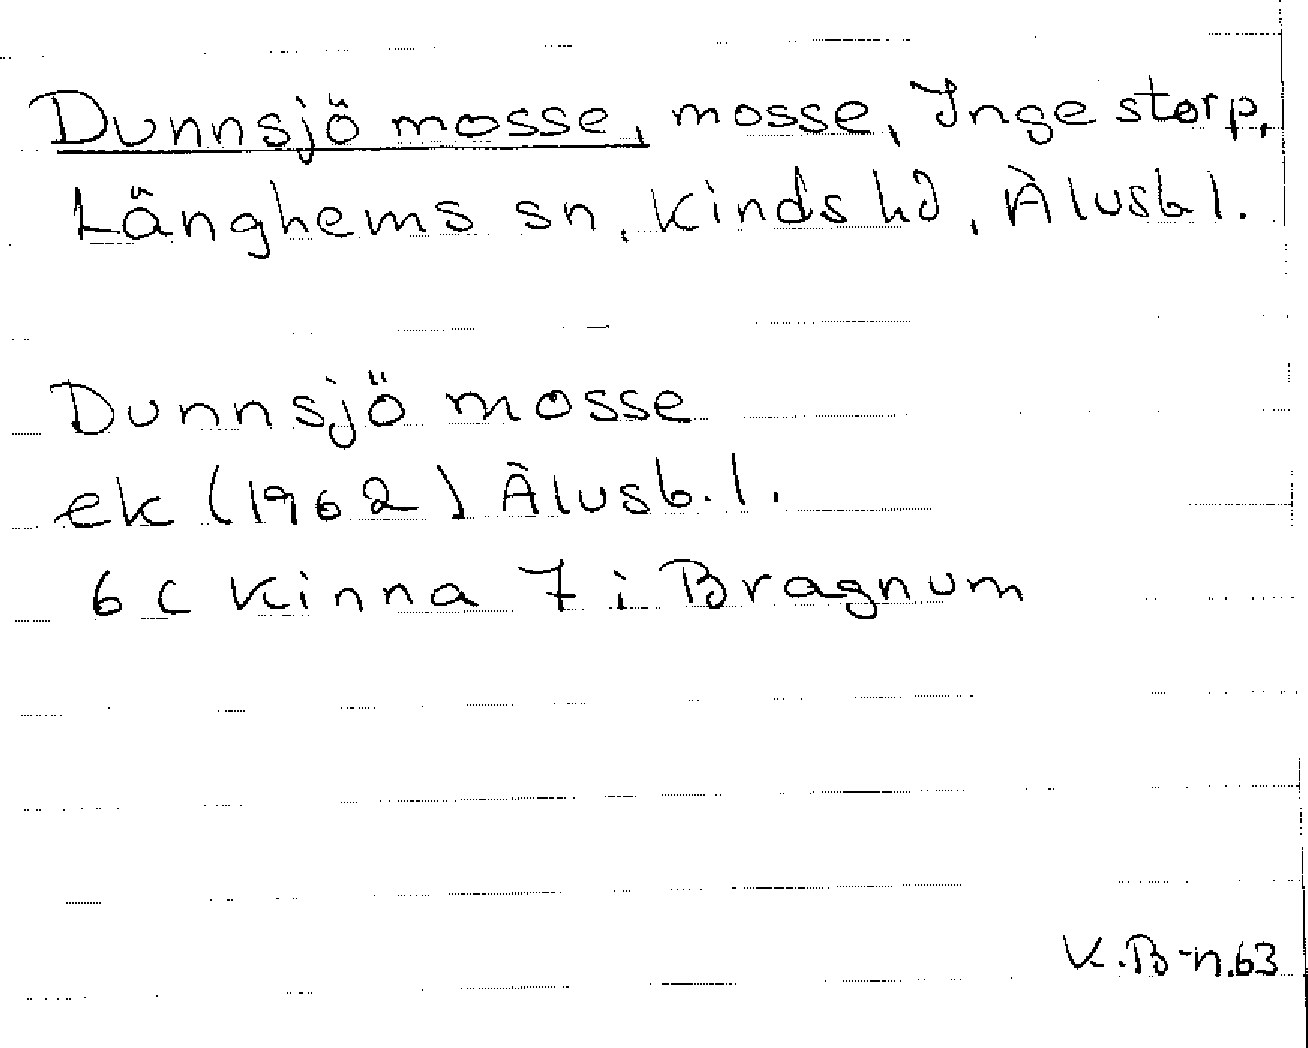 Dunnsjö mosse, mosse, Ingestorp,
Länghems sn, Kinds hd, Älvsb l.
Dunnsjö mosse
ek (1962) Älvsb. l.
6 C Kinna 7 i Bragnum
K.B-n.63